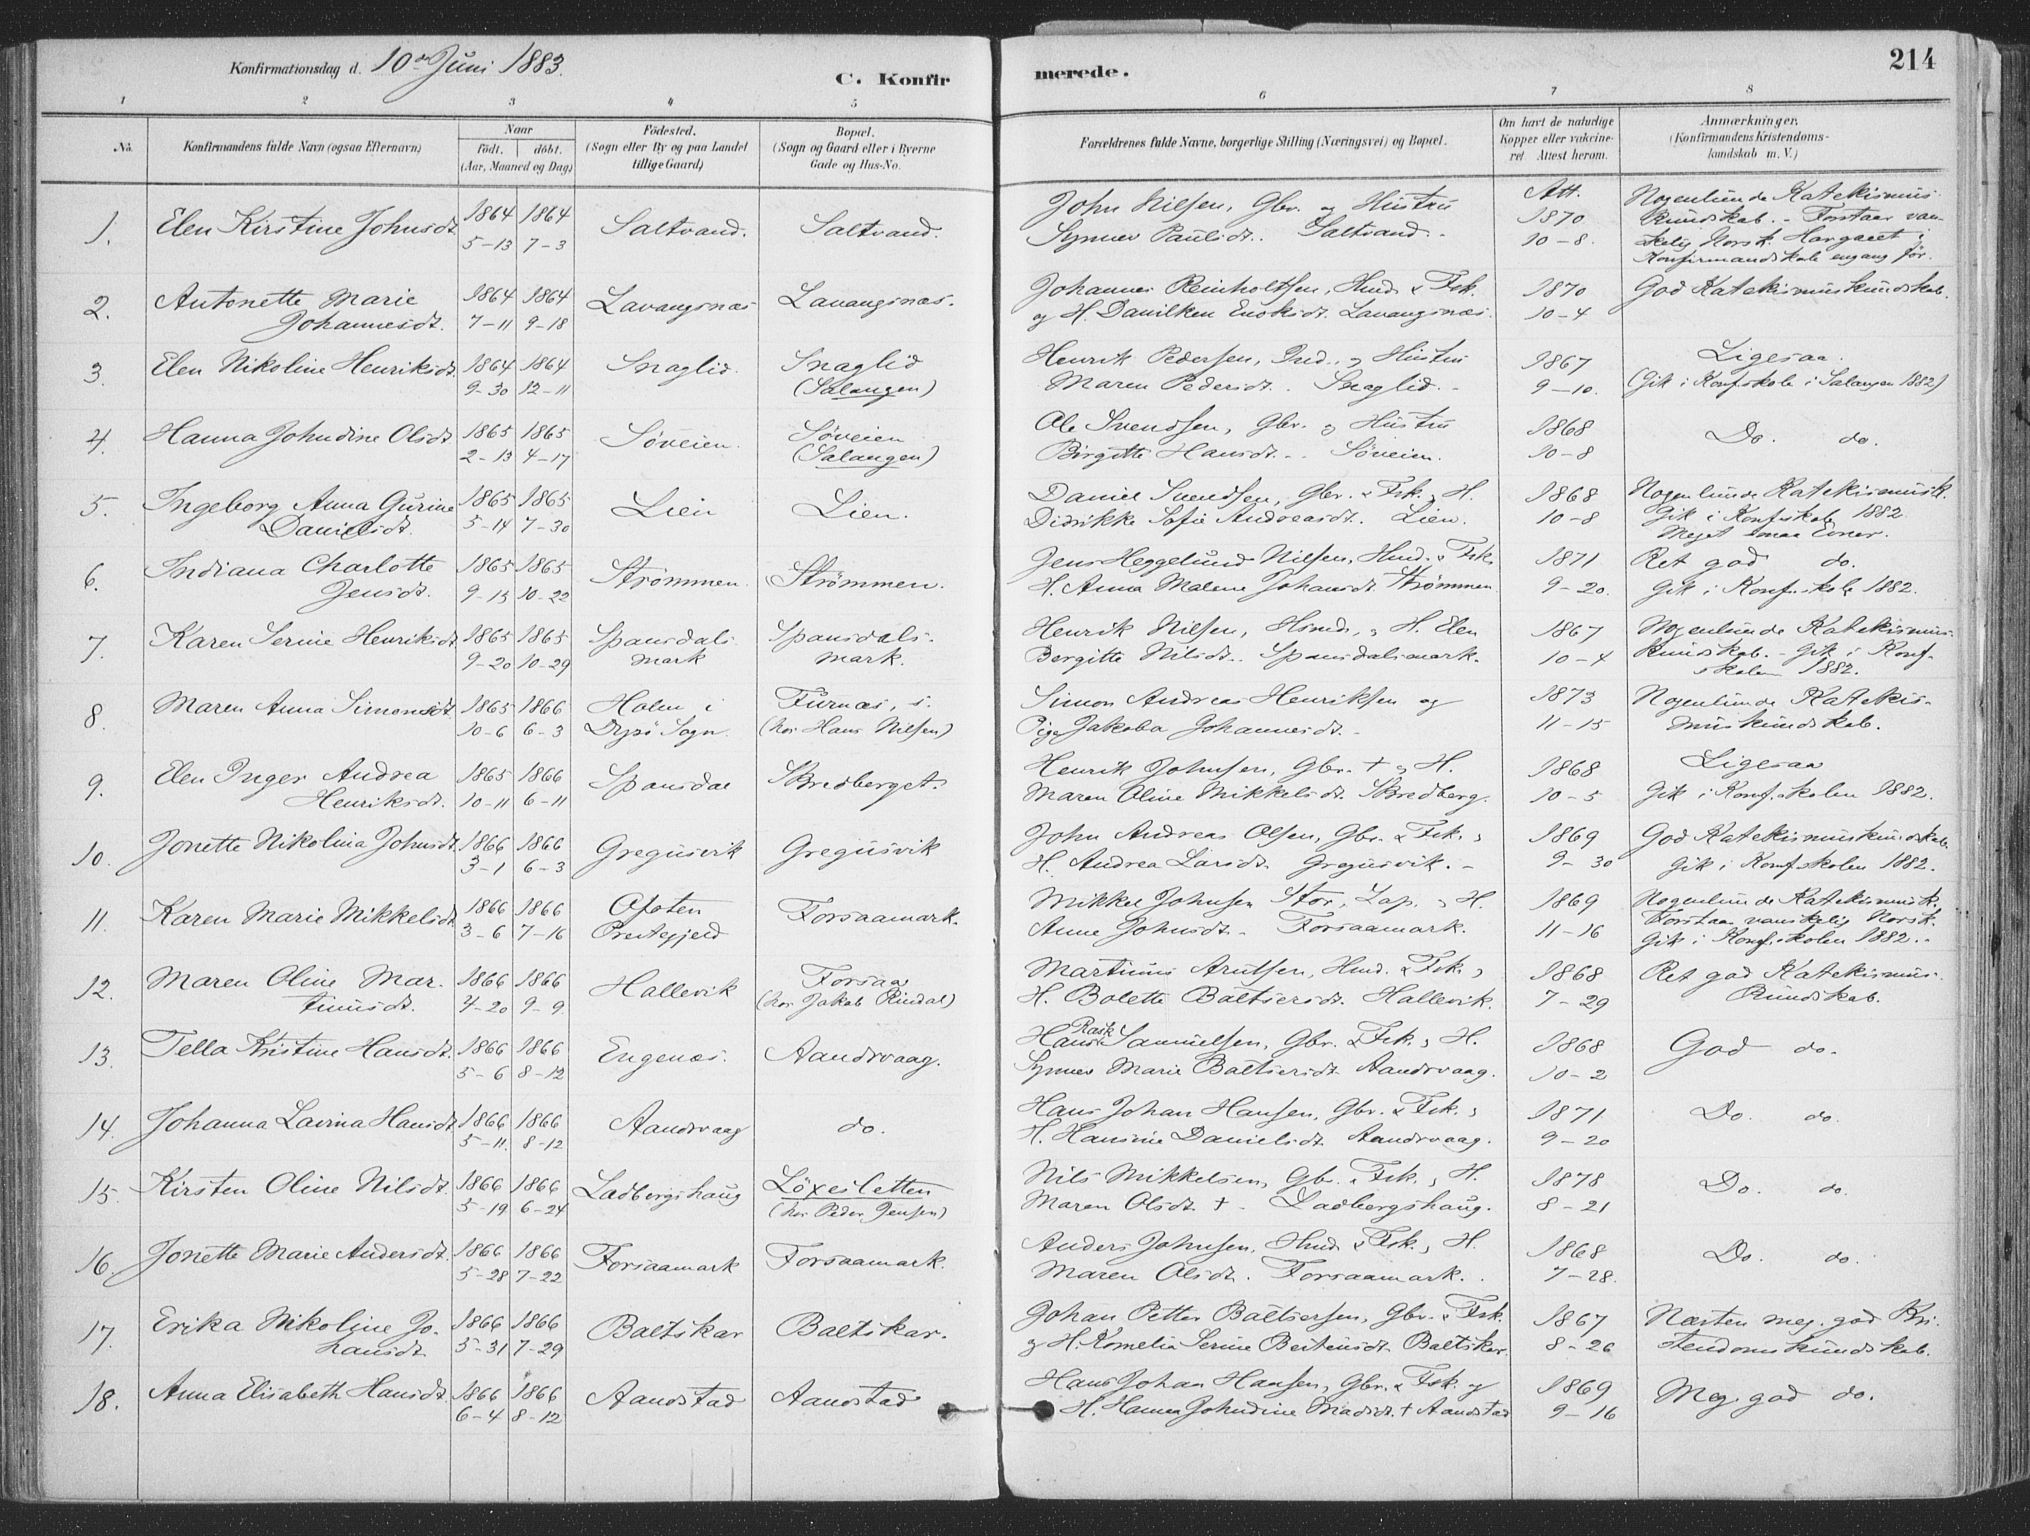 Konfirmationsdag d. 10de Juni 1883.
C. Konfir
merede.
214
1 2 3 4 5 6 7 8
No. Konfirmandens fulde Navn (ogsaa Efternavn) Naar født. døbt. (Aar, Maaned og Dag) Fødested. (Sogn eller By og paa Landet tillige Gaard) Bopæl. (Sogn og Gaard eller i Byerne Gade og Hus-No. Forældrenes fulde Navne, borgerlige Stilling (Næringsvei) og Bopæl. Om havt de naturlige Kopper eller vakcineret Attest herom. Anmærkninger. (Konfirmandens Kristendomskundskab m. V.)
1. Elen Kirstine Johnsdt. 1864 5-13 1864 7-3 Saltvand. Saltvand. John Nilsen, Gbr. og Hustru
Synnev Paulsdt. Saltvand. Att. 1870 10-8. Nogenlunde Katekismus-
kundskab. - Forstaar van-
skelig Norsk. Har gaaet i
Konfirmandskole engang før.
2. Antonette Marie
Johannesdt. 1864 7-11 1864 9-18 Lavangsnæs Lavangsnæs. Johannes Reinholtsen, Hmd. & Fsk.
og H. Danilken Enoksdt. Lavangsnæs. 1870 10-4 God Katekismuskundskab.
3. Elen Nikoline Henriksdt. 1864 9-30 1864 12-11 Snaglid. Snaglid
(Salangen) Henrik Pedersen, Ind., og Hustru
Maren Pedersdt. Snaglid. - 1867 9-10. Ligesaa.
(Gik i Konf.skole i Salangen 1882)
4. Hanna Johndine Olsdt. 1865 2-13 1865 4-17 Søveien. Søveien
(Salangen) Ole Svendsen, Gbr. og Hustru
Birgitte Hansdt. - Søveien. 1868 10-8 Do. do.
5. Ingeborg Anna Gurine
Danielsdt. 1865 5-14 1865 7-30 Lien Lien. Daniel Svendsen, Gbr. & Fsk. og H.
Didrikke Sofie Andreasdt. Lien. 1868 10-8 Nogenlunde Katekismusk.
Gik i Konf.skole 1882.
Meget smaa Evner.
6. Indiana Charlotte
Jensdt. 1865 9-15 1865 10-22 Strømmen. Strømmen. Jens Heggelund Nilsen, Hmd. & Fsk.
H. Anna Malene Johansdt. Strømmen 1871 9-20. Ret god do.
Gik i Konf.skole 1882.
7. Karen Serine Henriksdt. 1865 9-20 1865 10-29 Spansdals
mark Spansdals-
mark. Henrik Nilsen, Hsmd., og H. Elen
Bergitte Nilsdt. Spansdalsmark. 1867 10-4 Nogenlunde Katekismus-
kundskab. - Gik i Konf-
skolen 1882.
8. Maren Anna Simonsdt. 1865 10-6 1866 6-3 Holm i
Dyrø Sogn. Furnæs, s.
(hos Hans Nilsen) Simon Andreas Henriksen og
Pige Jakoba Johannesdt. - 1873 11-15 Nogenlunde Katekis-
muskundskab.
9. Elen Inger Andrea
Henriksdt. 1865 10-11 1866 6-11 Spansdal Skredberget. Henrik Johnsen, Gbr. † og H.
Maren Oline Mikkelsdt. Skredberg. 1868 10-5 Ligesaa
Gik i Konf.skolen 1882.
10. Jonette Nikolina Johnsdt. 1866 3-1 1866 6-3 Gregusvik Gregusvik John Andreas Olsen, Gbr. & Fsk. og
H. Andrea Larsdt. Gregusvik. - 1869 9-30 God Katekismuskundskab
Gik i Konf.skolen 1882.
11. Karen Marie Mikkelsdt. 1866 3-6 1866 7-16 Ofoten
Præstegjeld Forsaamark. Mikkel Johnsen Stor, Lap. og H.
Anne Johnsdt. - Forsaamark. 1869 11-16 Nogenlunde Katekismusk.
Forstaar vanskelig Norsk.
Gik i Konf.skolen 1882.
12. Maren Oline Mar-
tinusdt. 1866 4-20 1866 9-9 Hallevik Forsaa
(hos Jakob Rindal) Martinus Arntsen, Hmd. & Fsk. og
H. Bolette Baltsersdt. Hallevik. 1868 7-29 Ret god Katekismus-
kundskab.
13. Tella Kristine Hansdt. 1866 5-6 1866 8-12 Engenæs. Aandsvaag. Hans Rask Samuelsen, Gbr. & Fsk. og H.
Synnev Marie Baltsersdt. Aandsvaag. 1868 10-2 God do.
14. Johanna Lavina Hansdt. 1866 5-11. 1866 8-12 Aandsvaag do. Hans Johan Hansen, Gbr. & Fsk. og
H. Hansine Danielsdt. Aandsvaag. 1871 9-20 Do. do.
15. Kirsten Oline Nilsdt. 1866 5-19 1866 6-24 Ladbergshaug Løxesletten
(hos Peder Jensen) Nils Mikkelsen, Gbr. & Fsk. og H.
Maren Olsdt. † - Ladbergshaug. 1878 8-21 Do. do.
16. Jonette Marie Andersdt. 1866 5-28 1866 7-22 Forsaamark Forsaamark. Anders Johnsen, Hmd. & Fsk. og H.
Maren Olsdt. Forsaamark. 1868 7-28. Do. do.
17. Erika Nikoline Jo-
hansdt. 1866 5-31 1866 7-29 Baltskar Baltskar. Johan Petter Baltsersen, Gbr. & Fsk.
og H. Kornelia Serine Bertensdt. Baltskar. 1867 8-26 Næsten meg. god Kri-
stendomskundskab.
18. Anna Elisabeth Hansdt. 1866 6-4 1866 8-12 Aandstad Aandstad Hans Johan Hansen, Gbr. & Fsk. og
H. Hanna Johndine Madsdt. † Aandstad 1869 9-16 Meg. god do.